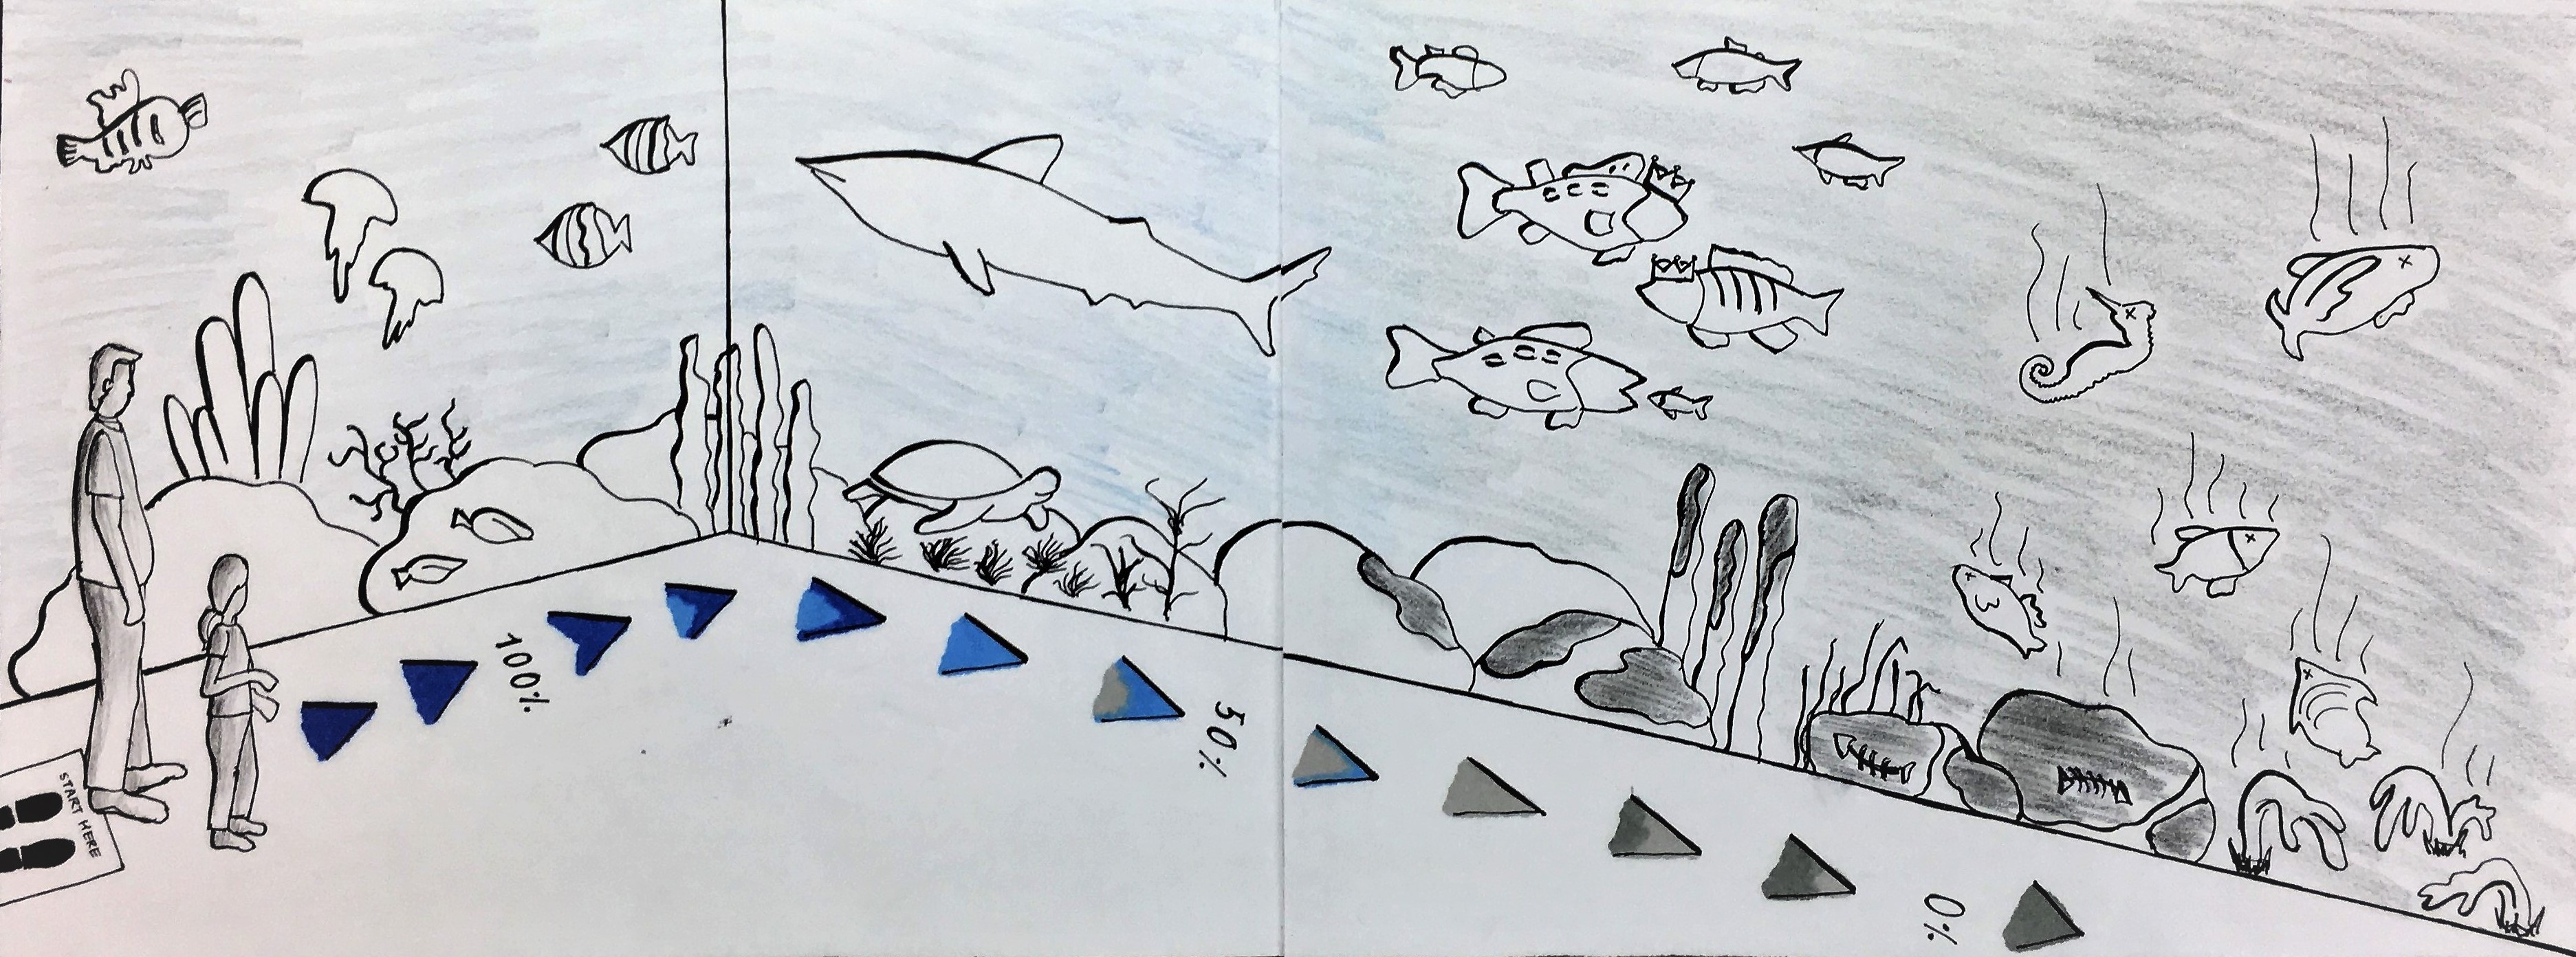 START HERE
100%
50%
0%